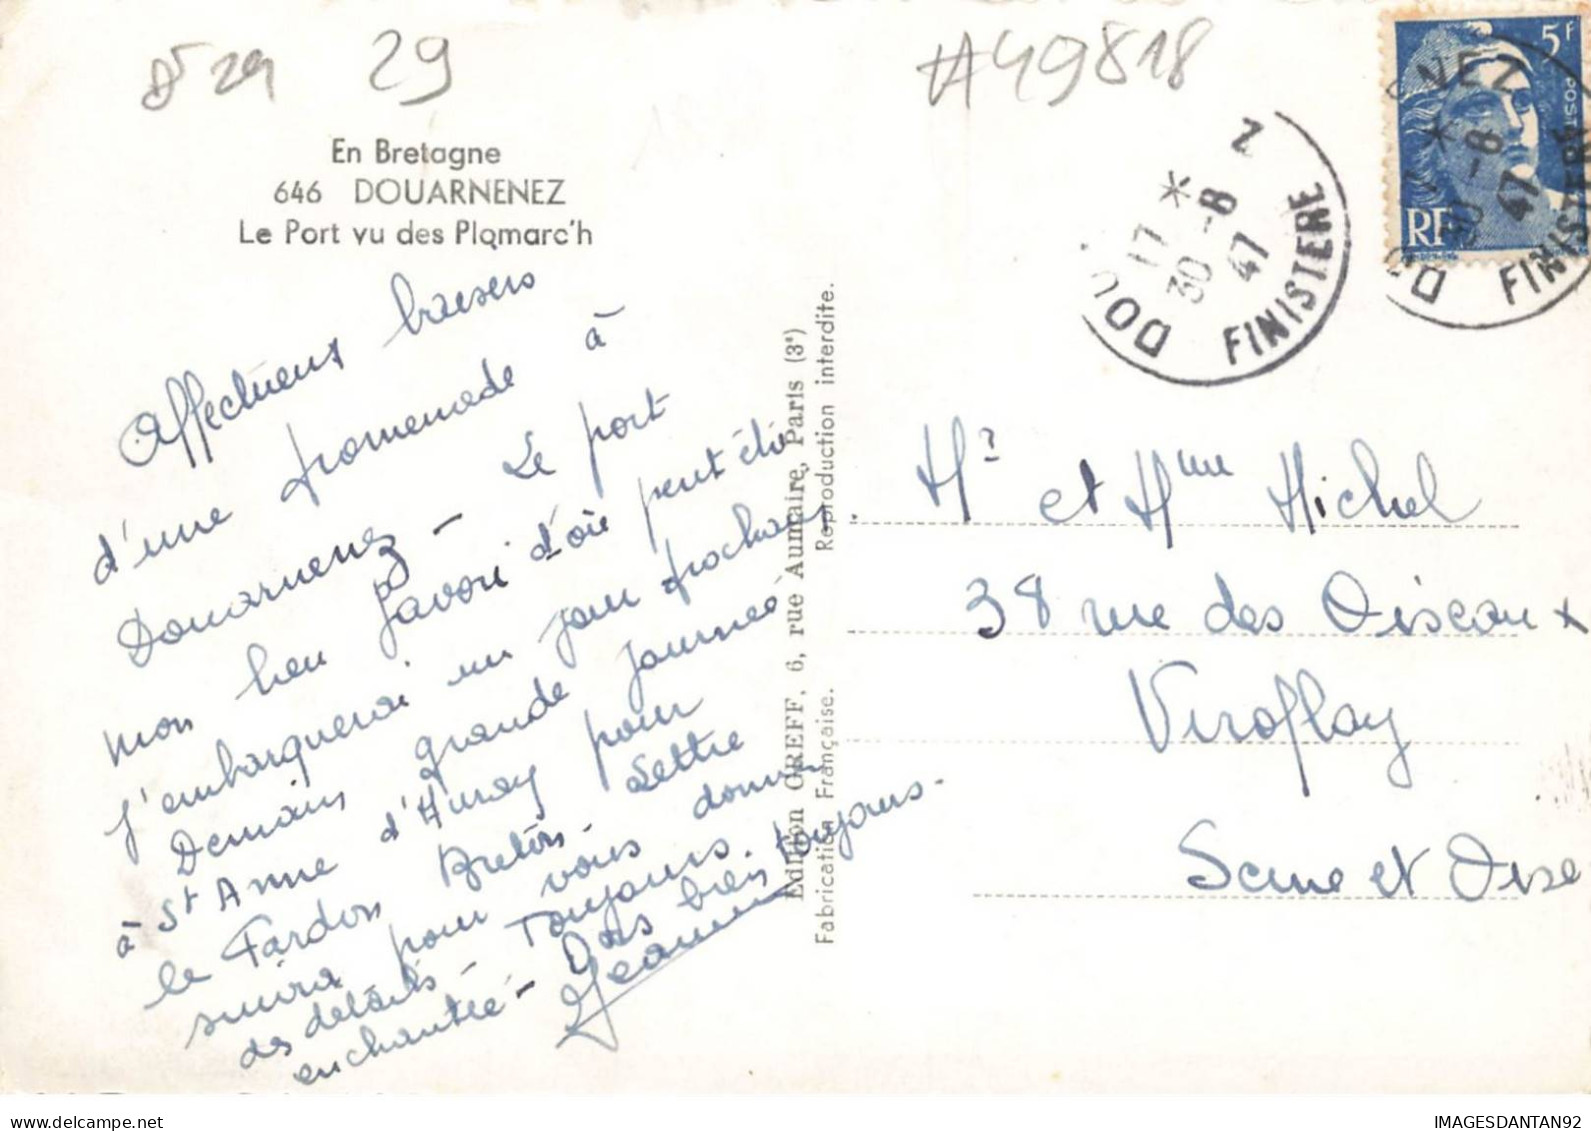 29
#49818
En Bretagne
646 DOUARNENEZ
Le Port vu des Plomarc'h
Affectueux baisers
d'une promenade à
Douarnenez - Le port
mon lieu favori d'où peut être
j'embarquerai un jour prochain.
Demain grande journée
à St Anne d'Auray pour
le Pardon Breton. Lettre
suivra pour vous donner
des détails - Toujours
enchantée - bien toujours.
Jeannine
Edition GREFF, 6, rue Aumaire, Paris (3e)
Fabrication Française. Reproduction interdite.
5F
POSTES
RF
DOUARNENEZ
17 *
30 -8
47
FINISTERE
DOUARNENEZ
17 *
30 -8
47
FINISTERE
Mr et Mme Michel
38 rue des Oiseaux
Viroflay
Seine et Oise
IMAGESDANTAN92